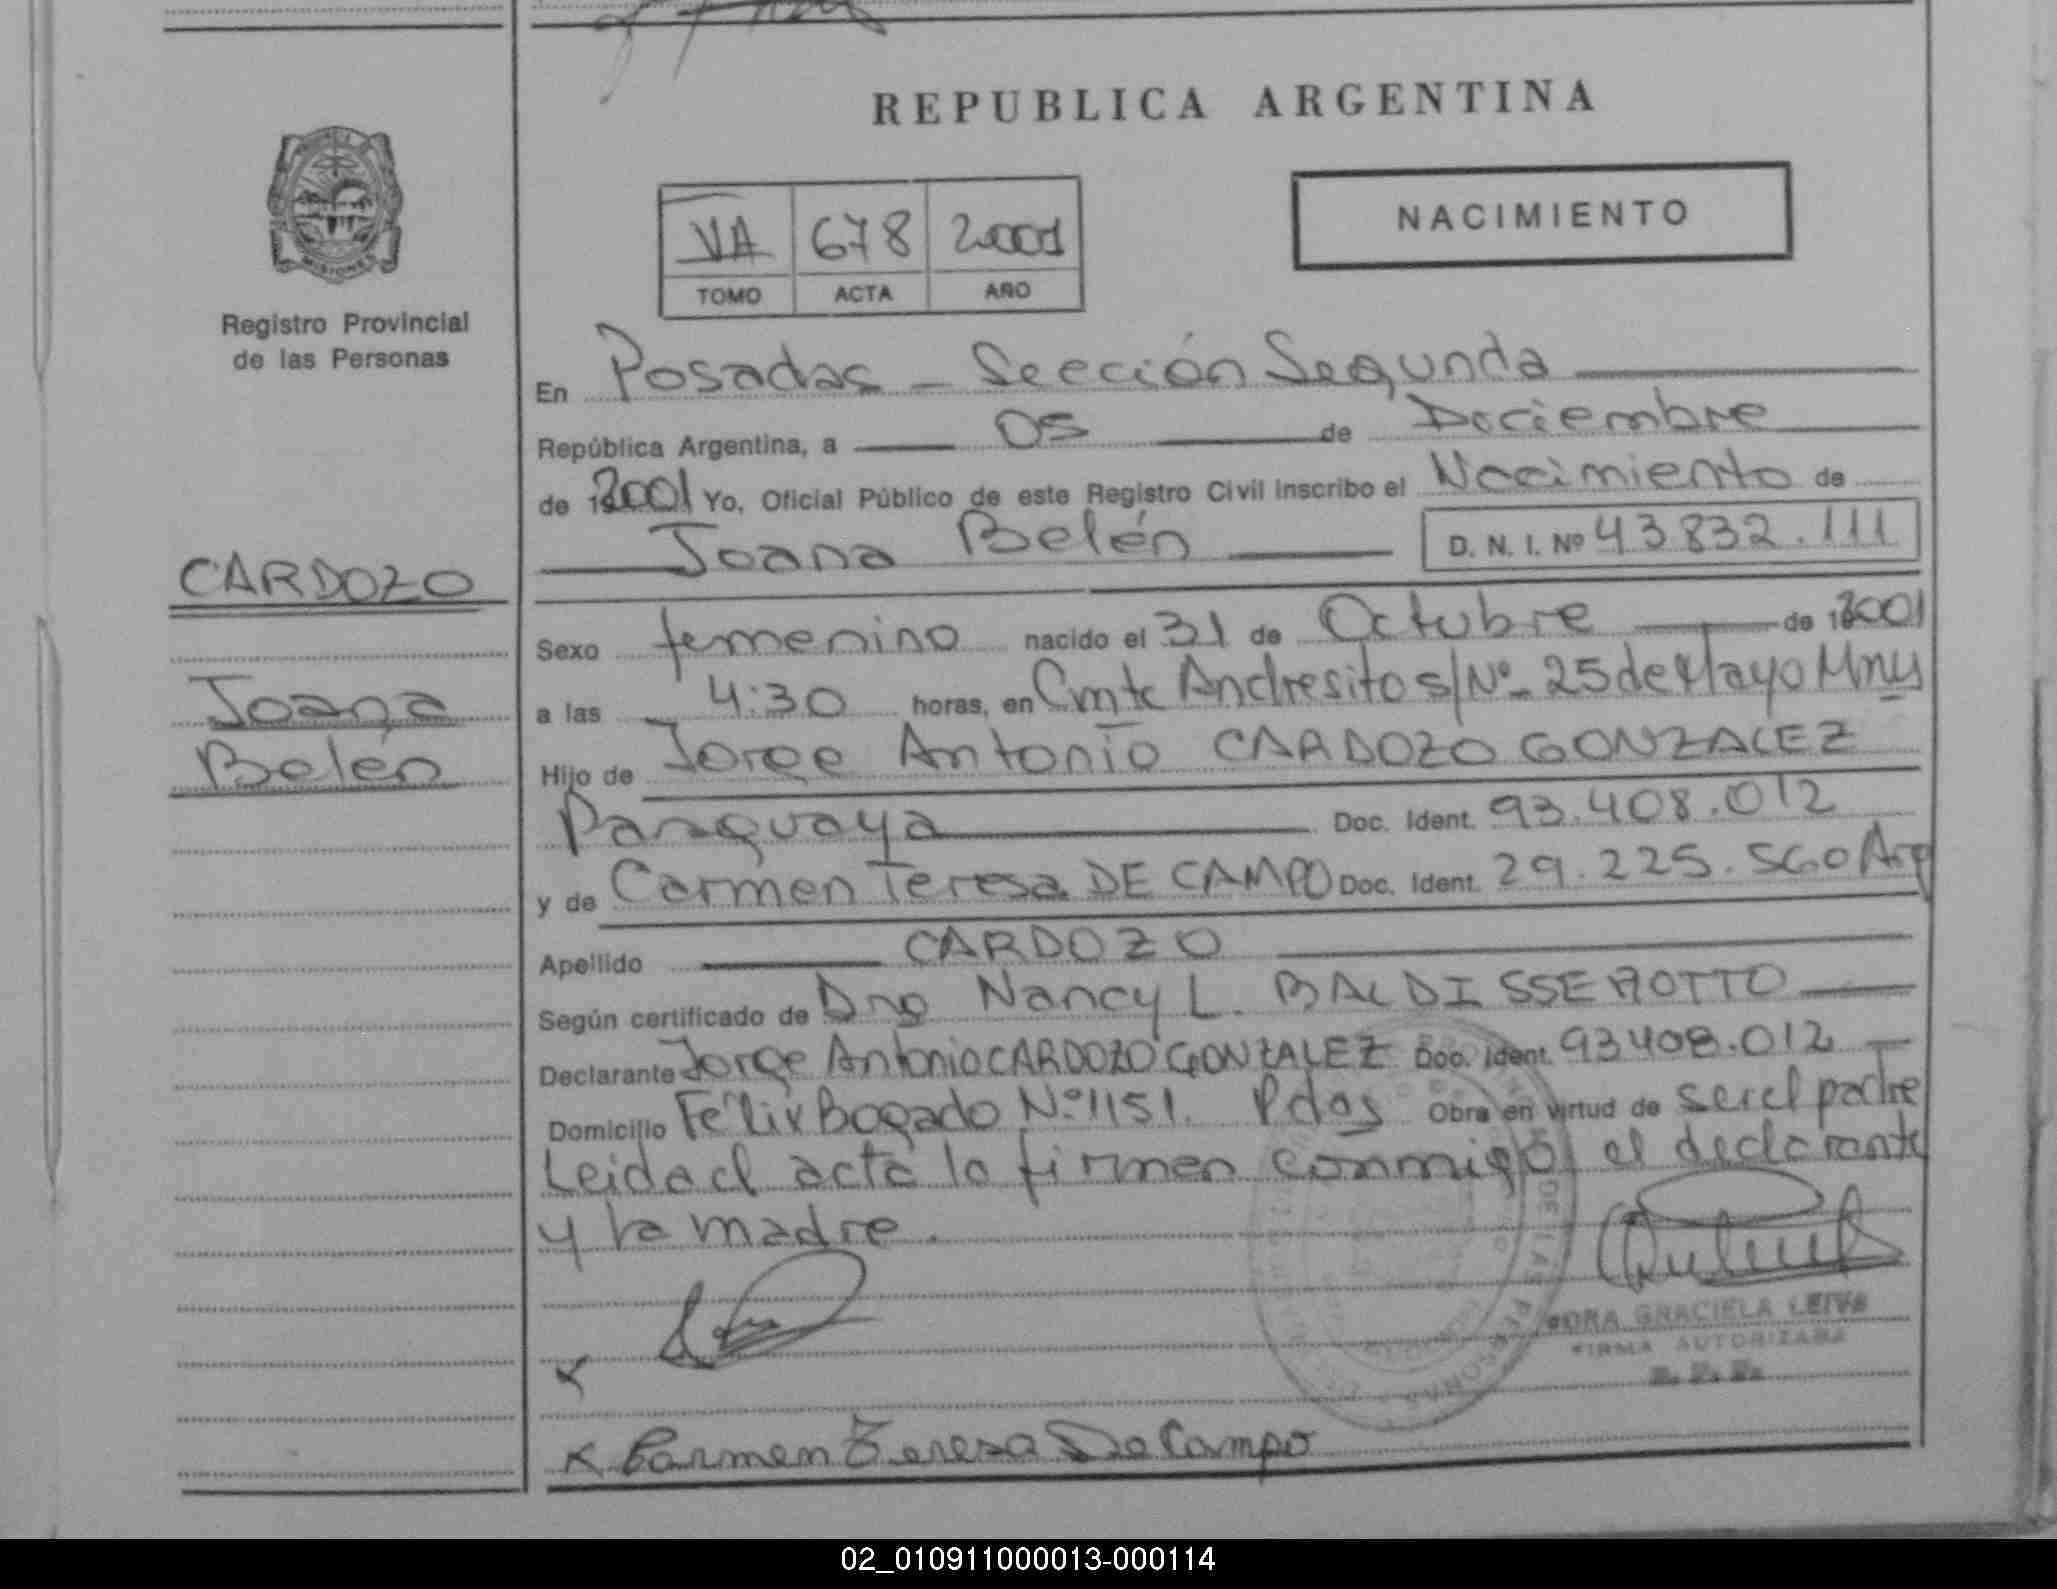 REPUBLICA ARGENTINA
MISIONES
Registro Provincial
de las Personas
VA 678 2001
TOMO ACTA AÑO
NACIMIENTO
En Posadas - Sección Segunda
República Argentina, a 05 de Diciembre
de 2001 Yo, Oficial Público de este Registro Civil inscribo el Nacimiento de
Joana Belén D. N. I. Nº 43832.111
CARDOZO
Joana
Belén
Sexo femenino nacido el 31 de Octubre de 2001
a las 4:30 horas, en Cmte Andresito s/Nº- 25 de Mayo Mnes
Hijo de Jorge Antonio CARDOZO GONZALEZ
Paraguaya Doc. Ident. 93.408.012
y de Carmen Teresa DE CAMPO Doc. Ident. 29.225.560 Arg
Apellido CARDOZO
Según certificado de Dra Nancy L. BALDISSEROTTO
Declarante Jorge Antonio CARDOZO GONZALEZ Doc. Ident. 93408.012
Domicilio Félix Bogado Nº1151. Pdas Obra en virtud de ser el padre
Leida el acta la firman conmigo, el declarante
y la madre.
GRACIELA LEIVA
FIRMA AUTORIZADA
x
x Carmen Teresa De Campo
02_010911000013-000114